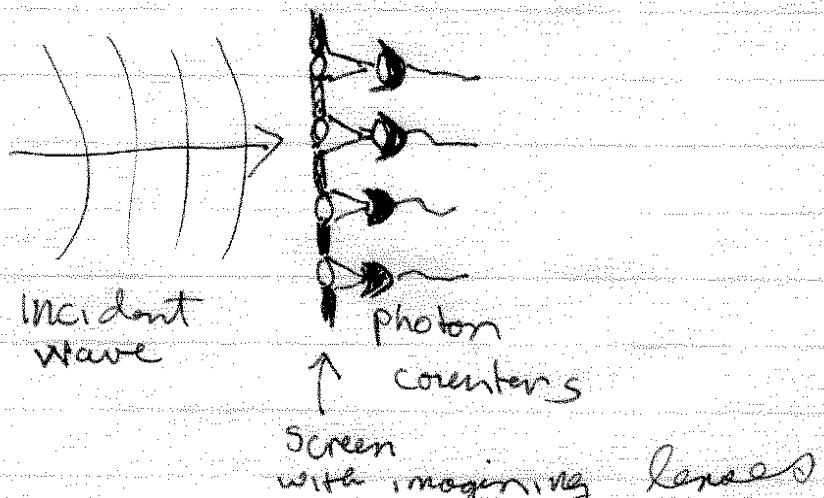 Incident
wave
photon
counters
screen
with imagining lenses